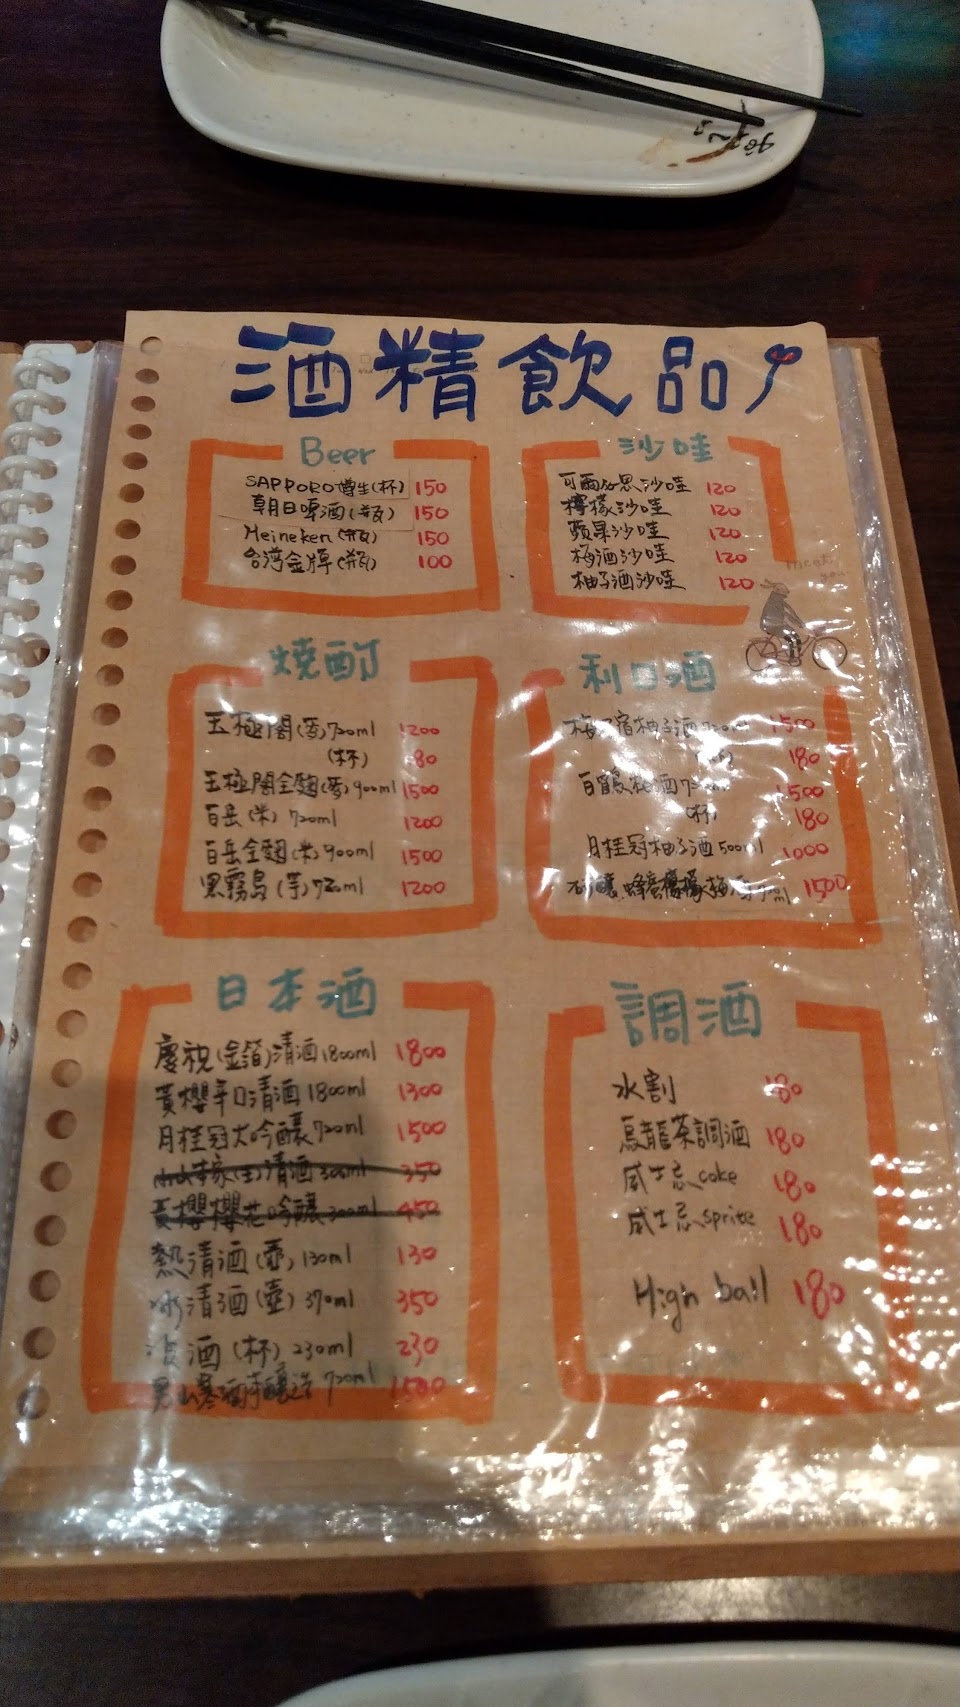 酒精飲品
Beer
SAPPORO樽生(杯) 150
朝日啤酒(瓶) 150
Heineken(瓶) 150
台湾金牌(瓶) 100
沙哇
可爾必思沙哇 120
檸檬沙哇 120
蘋果沙哇 120
梅酒沙哇 120
柚子酒沙哇 120
燒酎
玉極閣(麥)720ml 1200
(杯) 180
玉極閣全麴(麥)900ml 1500
百岳(米) 720ml 1200
百岳全麴(米)900ml 1500
黑霧島(芋)720ml 1200
利口酒
梅乃宿柚子酒720ml 1500
180
百鶴梅酒720ml 1500
(杯) 180
月桂冠柚子酒500ml 1000
蜂蜜檸檬梅酒 1500
日本酒
慶祝(金箔)清酒1800ml 1800
黃櫻辛口清酒1800ml 1300
月桂冠大吟釀720ml 1500
清酒300ml 350
黃櫻櫻花吟釀300ml 450
熱清酒(壺)130ml 130
冰清酒(壺)370ml 350
酒(杯)230ml 230
男山寒酒 720ml 1500
調酒
水割 180
烏龍茶調酒 180
威士忌coke 180
威士忌sprite 180
High ball 180